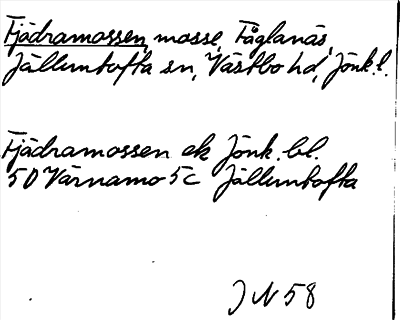 Fjädramossen, mosse, Fåglanäs,
Jälluntofta sn, Västbo hd, Jönk. l.
Fjädramossen ek Jönk. bl.
5D Värnamo 5c Jälluntofta
J N 58